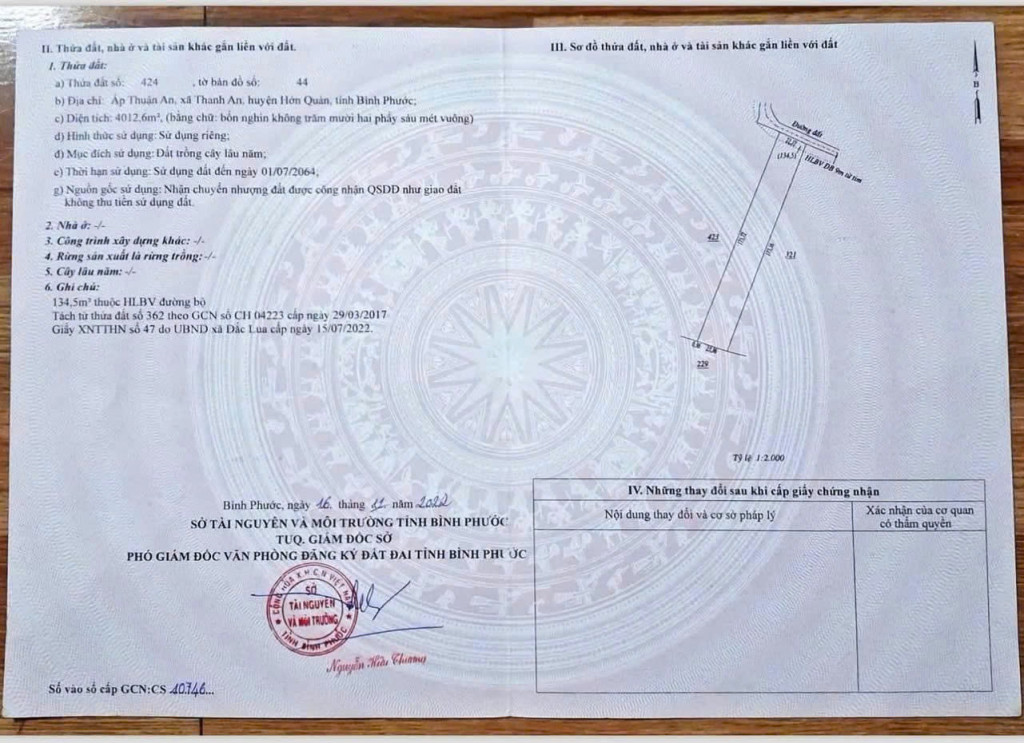 II. Thửa đất, nhà ở và tài sản khác gắn liền với đất.
1. Thửa đất:
a) Thửa đất số: 424 , tờ bản đồ số: 44
b) Địa chỉ: Ấp Thuận An, xã Thanh An, huyện Hớn Quản, tỉnh Bình Phước;
c) Diện tích: 4012,6m², (bằng chữ: bốn nghìn không trăm mười hai phẩy sáu mét vuông)
d) Hình thức sử dụng: Sử dụng riêng;
đ) Mục đích sử dụng: Đất trồng cây lâu năm;
e) Thời hạn sử dụng: Sử dụng đất đến ngày 01/07/2064;
g) Nguồn gốc sử dụng: Nhận chuyển nhượng đất được công nhận QSDD như giao đất
không thu tiền sử dụng đất.
2. Nhà ở: -/-
3. Công trình xây dựng khác: -/-
4. Rừng sản xuất là rừng trồng:-/-
5. Cây lâu năm: -/-
6. Ghi chú:
134,5m² thuộc HLBV đường bộ
Tách từ thửa đất số 362 theo GCN số CH 04223 cấp ngày 29/03/2017
Giấy XNTTHN số 47 do UBND xã Đắc Lua cấp ngày 15/07/2022.
Bình Phước, ngày 16 tháng 11 năm 2022
SỞ TÀI NGUYÊN VÀ MÔI TRƯỜNG TỈNH BÌNH PHƯỚC
TUQ. GIÁM ĐỐC SỞ
PHÓ GIÁM ĐỐC VĂN PHÒNG ĐĂNG KÝ ĐẤT ĐAI TỈNH BÌNH PHƯỚC
CỘNG HÒA X.H.C.N VIỆT NAM
SỞ
TÀI NGUYÊN
VÀ MÔI TRƯỜNG
TỈNH BÌNH PHƯỚC
Nguyễn Hữu Thương
Số vào sổ cấp GCN:CS 10746...
III. Sơ đồ thửa đất, nhà ở và tài sản khác gắn liền với đất
B
Đường đất
(134,5)
HLBV ĐB 9m từ tim
423
321
229
Tỷ lệ 1:2.000
IV. Những thay đổi sau khi cấp giấy chứng nhận
Nội dung thay đổi và cơ sở pháp lý
Xác nhận của cơ quan
có thẩm quyền